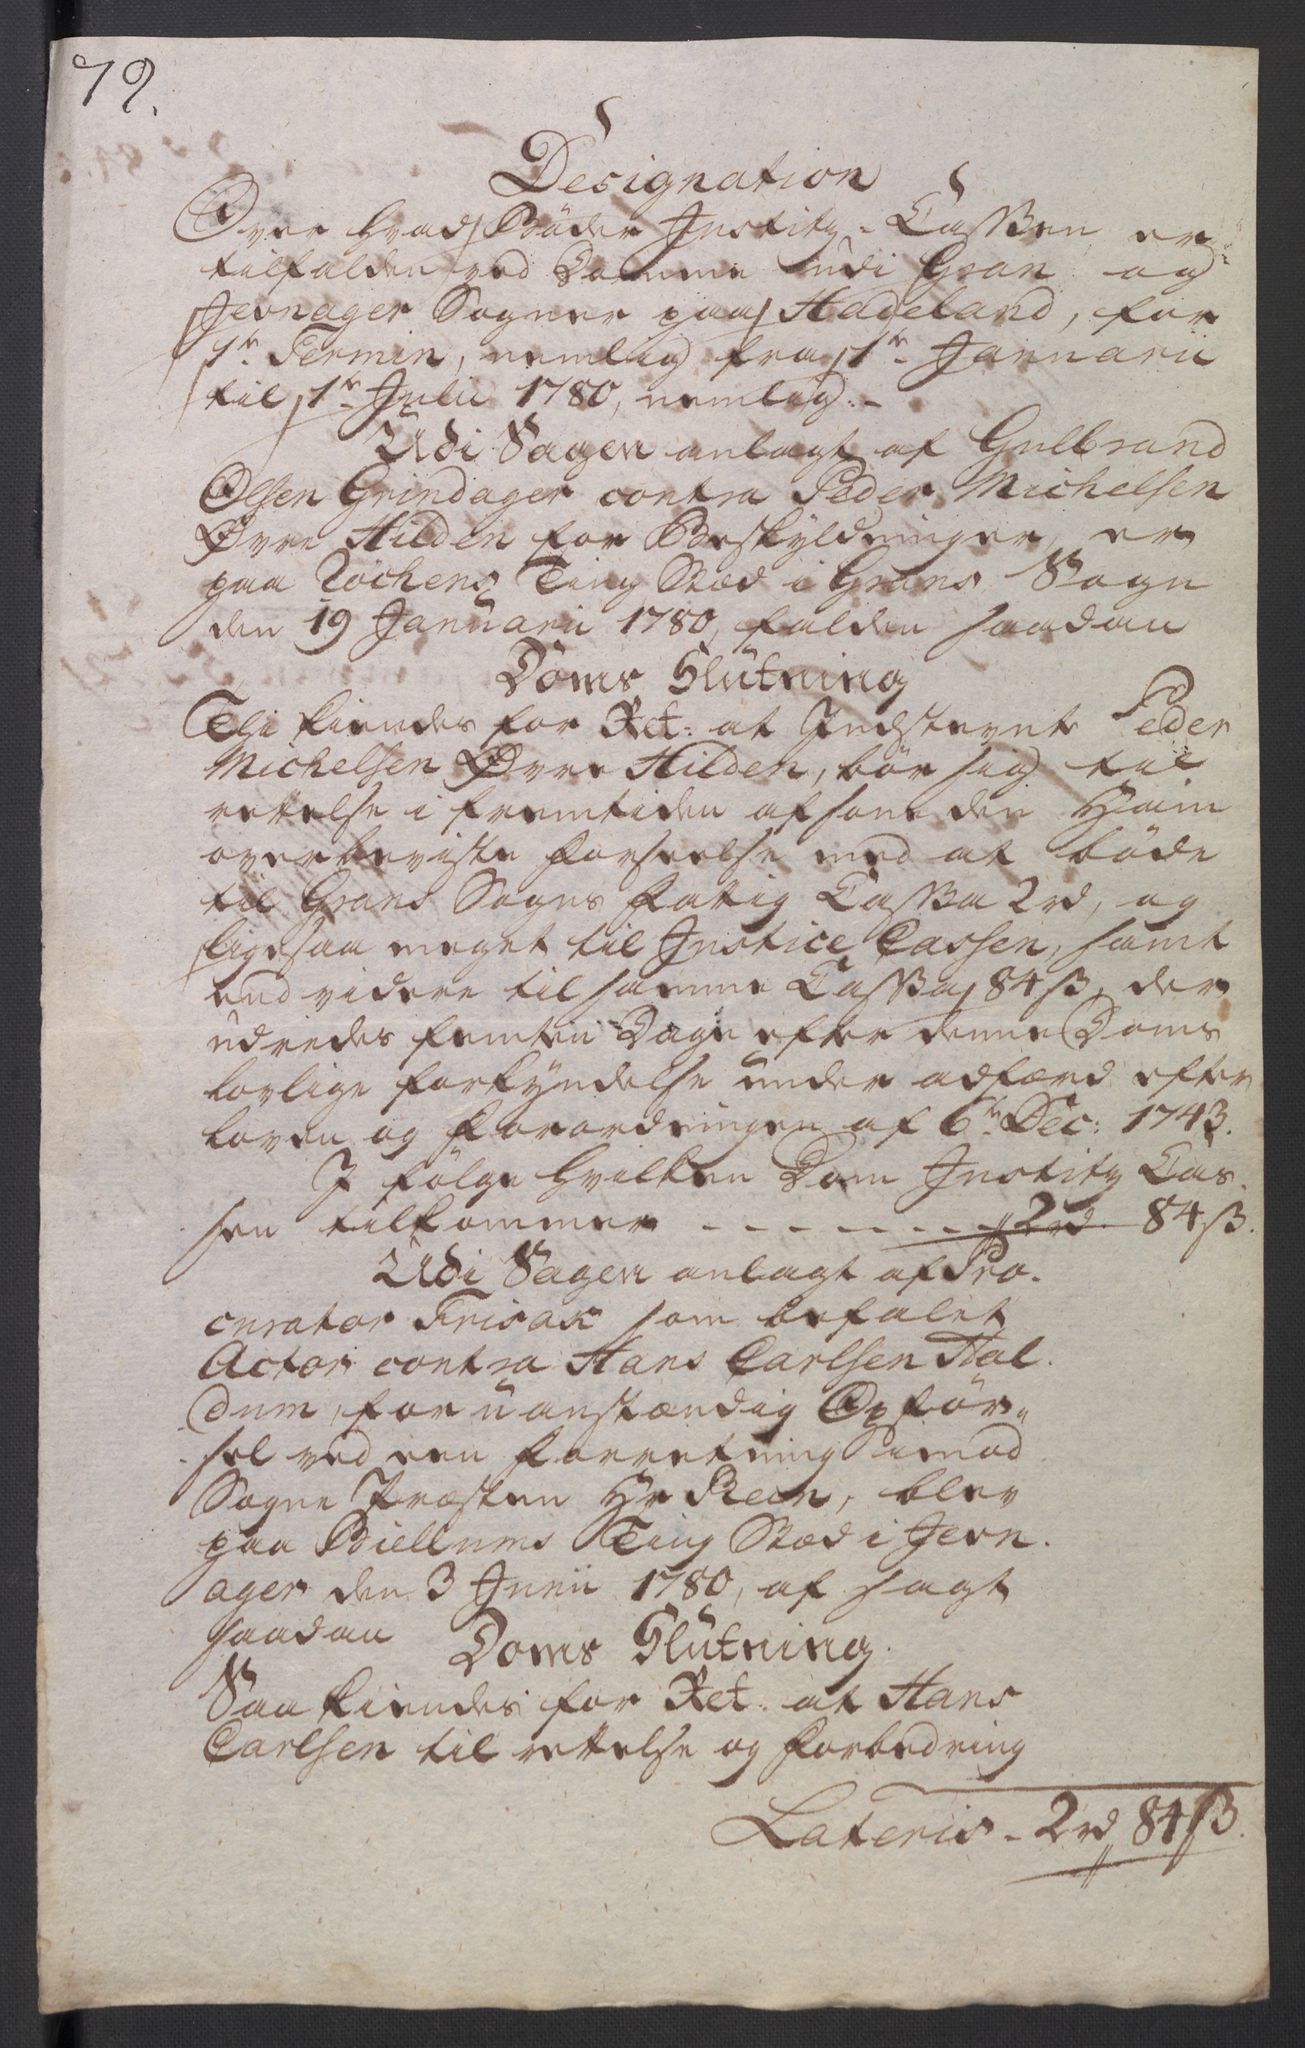 79.
Designation
Over hvad Bøder Justitz-Cassen er
tilfalden ved Domme udi Gran og
Jevnager Sogner paa Hadeland, for
1te Termin, nemlig fra 1te Januarii
til 1te Julii 1780, nemlig:-
Udi Sagen anlagt af Gulbrand
Olsen Grindager contra Peder Michelsen
Øvre Hilden for Beskyldninger, er
paa Röchens Ting Stæd i Grans Sogn
den 19 Januarii 1780, falden saadan
Doms Slutning
Thi kiendes for Ret: at Indstevnte Peder
Michelsen Øvre Hilden, bör sig til
rettelse i fremtiden afsone den Ham
overbeviste forseelse med at bøde
til Grans Sogns Fattig Cassa 2rd, og
ligesaa meget til Justice Cassen, samt
end videre til samme Cassa 84 ß, der
udredes femten Dage efter denne Doms
lovlige forkyndelse under adfærd efter
loven og Forordningen af 6te Dec: 1743.
I følge hvilken Dom Justitz Cas-
sen tilkommer - - - - - - - 2rd 84 ß.
Udi Sagen anlagt af Pro-
curator Frisak som befalet
Actor contra Hans Carlsen Hal-
dum, for uanstændig Opför-
sel ved een Forretning imod
Sogne Præsten Hr Rein, blev
paa Biellums Ting Stæd i Jevn-
ager den 3 Junii 1780, af sagt
saadan Doms Slutning.
Saa kiendes for Ret: at Hans
Carlsen til rettelse og forbedring
Lateris - 2rd 84 ß.